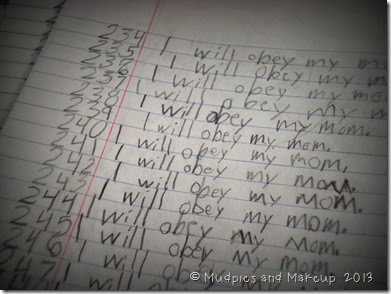 234 I will obey my m
235 I will obey my m
236 I will obey my mo
237 I will obey my m
238 I will obey my mom.
239 I will obey my mom.
240 I will obey my mom.
241 I will obey my mom.
242 I will obey my mom.
243 I will obey my mom.
244 I will obey my mom.
245 I will obey my mom.
246 I will
247
© Mudpies and Makeup 2013